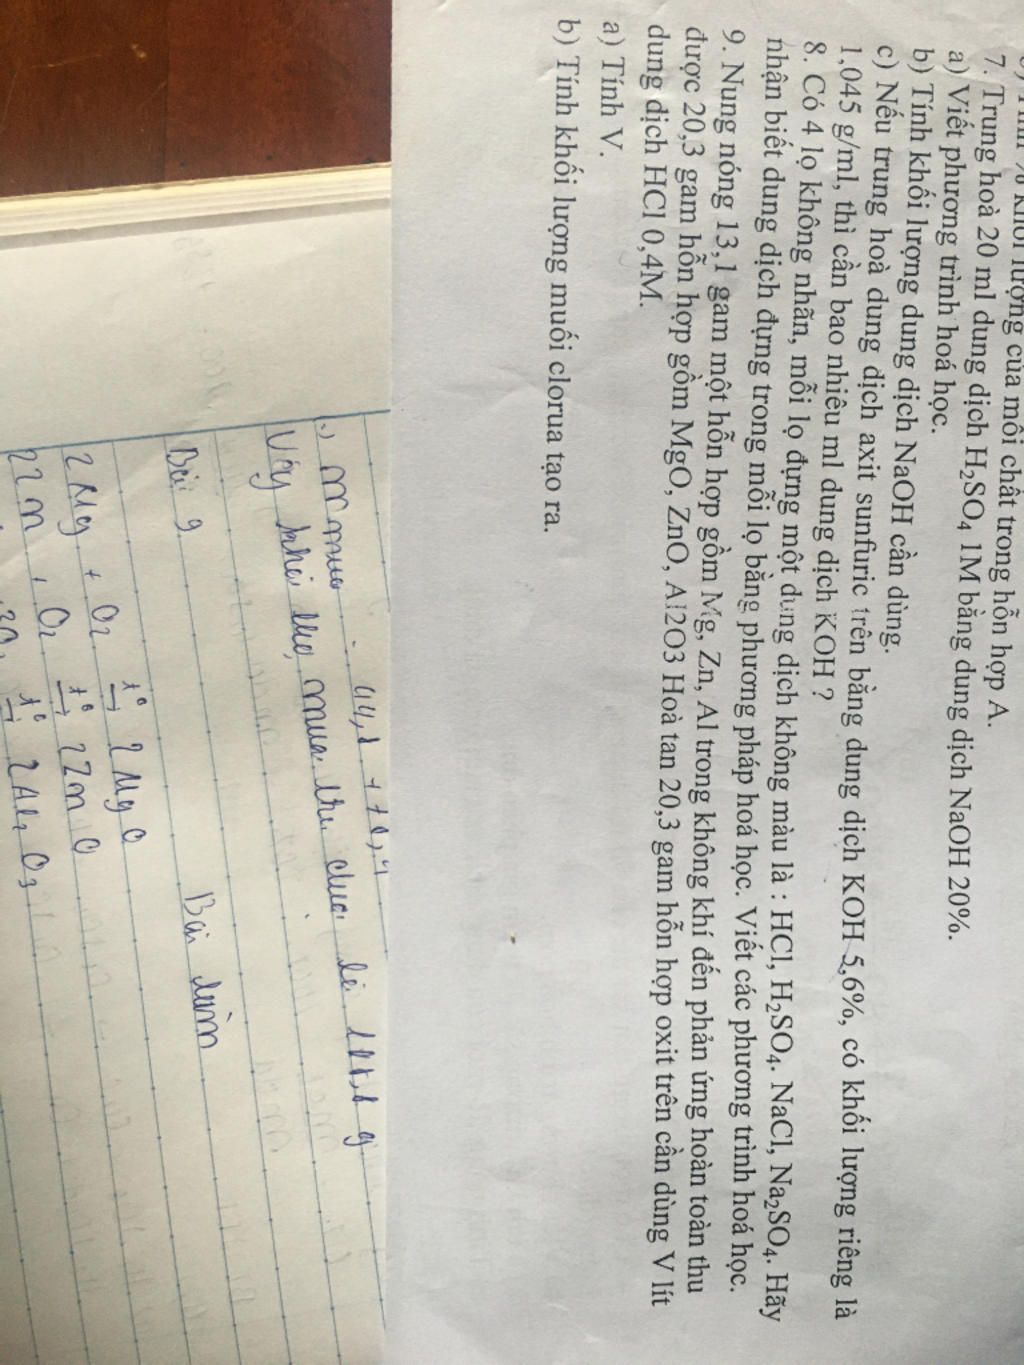 khối lượng của mỗi chất trong hỗn hợp A.
7. Trung hoà 20 ml dung dịch H₂SO₄ 1M bằng dung dịch NaOH 20%.
a) Viết phương trình hoá học.
b) Tính khối lượng dung dịch NaOH cần dùng.
c) Nếu trung hoà dung dịch axit sunfuric trên bằng dung dịch KOH 5,6%, có khối lượng riêng là
1,045 g/ml, thì cần bao nhiêu ml dung dịch KOH ?
8. Có 4 lọ không nhãn, mỗi lọ đựng một dung dịch không màu là : HCl, H₂SO₄. NaCl, Na₂SO₄. Hãy
nhận biết dung dịch đựng trong mỗi lọ bằng phương pháp hoá học. Viết các phương trình hoá học.
9. Nung nóng 13,1 gam một hỗn hợp gồm Mg, Zn, Al trong không khí đến phản ứng hoàn toàn thu
được 20,3 gam hỗn hợp gồm MgO, ZnO, Al2O3 Hoà tan 20,3 gam hỗn hợp oxit trên cần dùng V lít
dung dịch HCl 0,4M.
a) Tính V.
b) Tính khối lượng muối clorua tạo ra.
Vậy
Bài 9 Bài làm
2Mg + O₂ t° → 2MgO
2Zn + O₂ t° → 2ZnO
t° → 2Al₂O₃